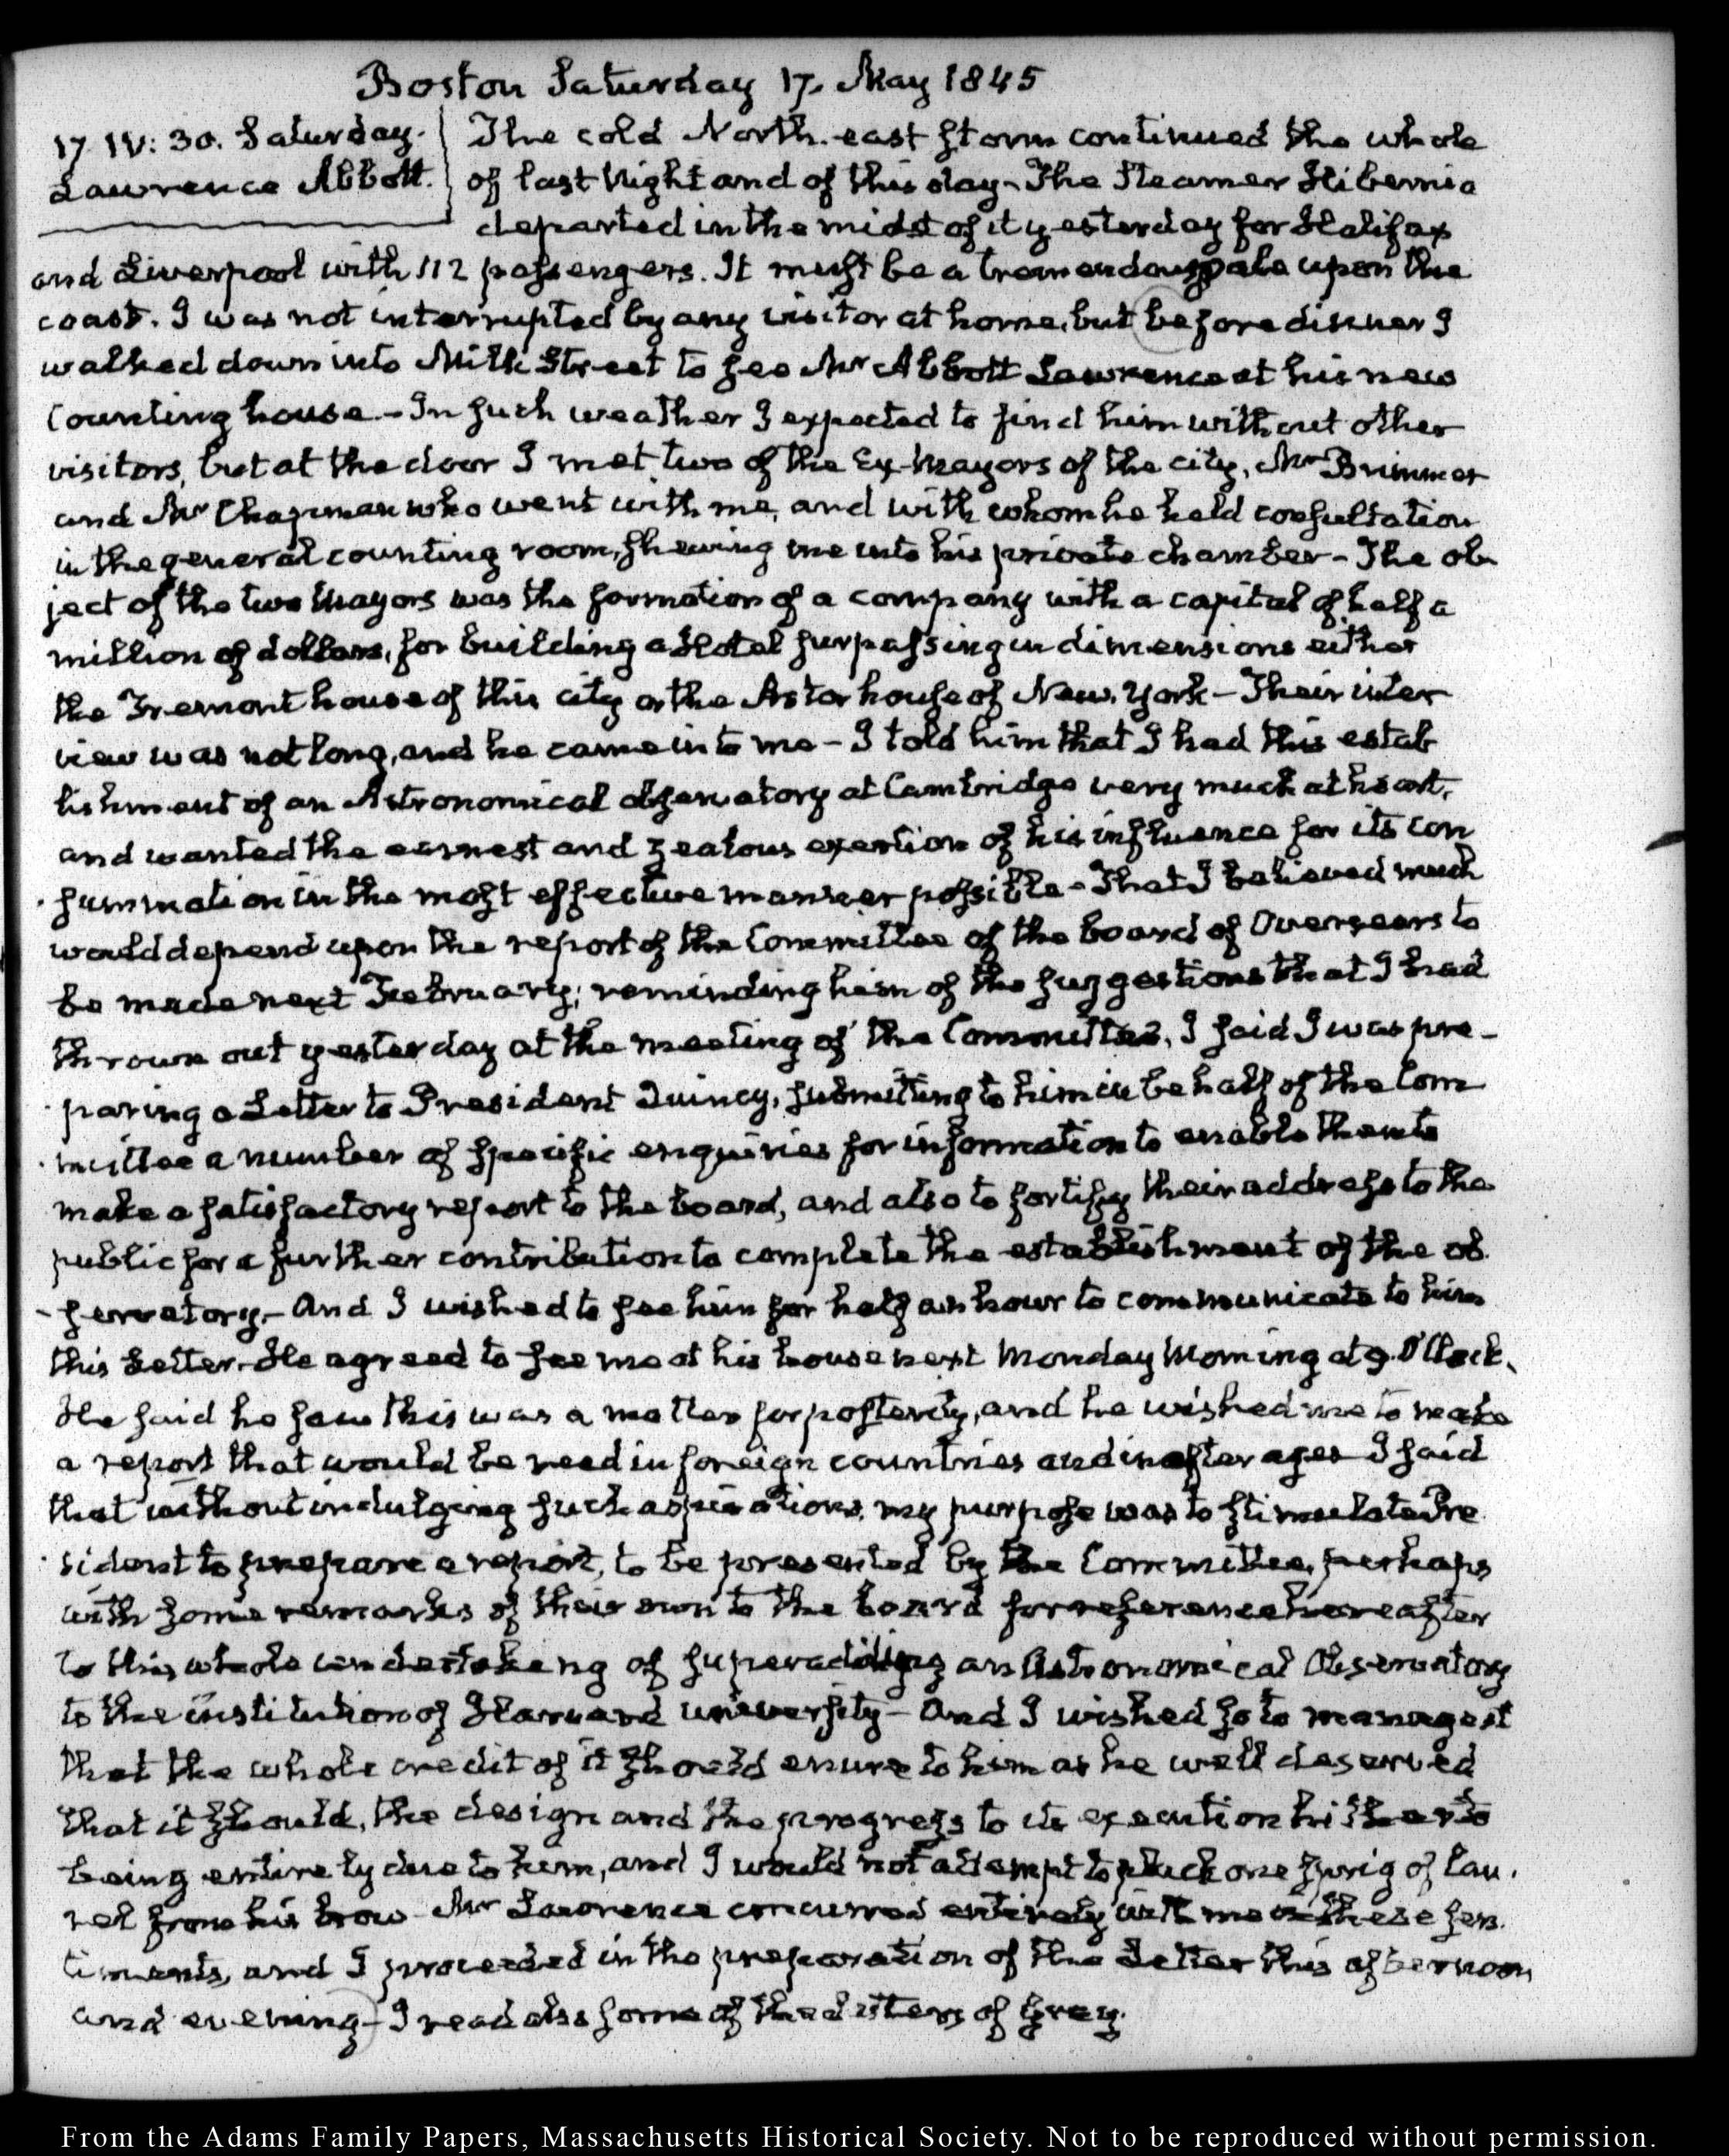 Boston Saturday 17. May 1845
17. IV: 30. Saturday.
Lawrence Abbott.
The cold North-east storm continued the whole
of last Night and of this day - The Steamer Hibernia
departed in the midst of it yesterday for Halifax
and Liverpool with 112 passengers. It must be a tremendous gale upon the
coast. I was not interrupted by any visitor at home, but before dinner I
walked down into Milk Street to see Mr Abbott Lawrence at his new
Counting house - In such weather I expected to find him without other
visitors, but at the door I met two of the Ex-Mayors of the city, Mr Brimmer
and Mr Chapman who went with me, and with whom he held consultation
in the general counting room, shewing me into his private chamber - The ob-
ject of the two Mayors was the formation of a company with a capital of half a
million of dollars, for building a Hotel surpassing in dimensions either
the Tremont house of this city or the Astor house of New-York - Their inter
view was not long, and he came in to me - I told him that I had this estab
lishment of an Astronomical observatory at Cambridge very much at heart,
and wanted the earnest and zealous exertion of his influence for its con
summation in the most effective manner possible - That I believed much
would depend upon the report of the Committee of the board of Overseers to
be made next February; reminding him of the suggestions that I had
thrown out yesterday at the meeting of the Committee, I said I was pre-
paring a Letter to President Quincy, submitting to him in behalf of the Com
mittee a number of specific enquiries for information to enable them to
make a satisfactory report to the board, and also to fortify their address to the
public for a further contribution to complete the establishment of the ob
servatory - And I wished to see him for half an hour to communicate to him
this Letter. He agreed to see me at his house next Monday Morning at 9. O'Clock.
He said he saw this was a matter for posterity, and he wished me to make
a report that would be read in foreign countries and in after ages I said
that without indulging such aspirations, my purpose was to stimulate Pre
sident to prepare a report, to be presented by the Committee, perhaps
with some remarks of their own to the board for reference hereafter
to this whole undertaking of superadding an Astronomical Observatory
to the institution of Harvard university - And I wished so to manage it
that the whole credit of it should enure to him as he well deserved
that it should, the design and the progress to its execution hitherto
being entirely due to him, and I would not attempt to pluck one sprig of lau.
rel from his brow Mr Lawrence concurred entirely with me in these sen.
timents, and I proceeded in the preparation of the Letter this afternoon
and evening - I read also some of the Letters of Grey.
From the Adams Family Papers, Massachusetts Historical Society. Not to be reproduced without permission.